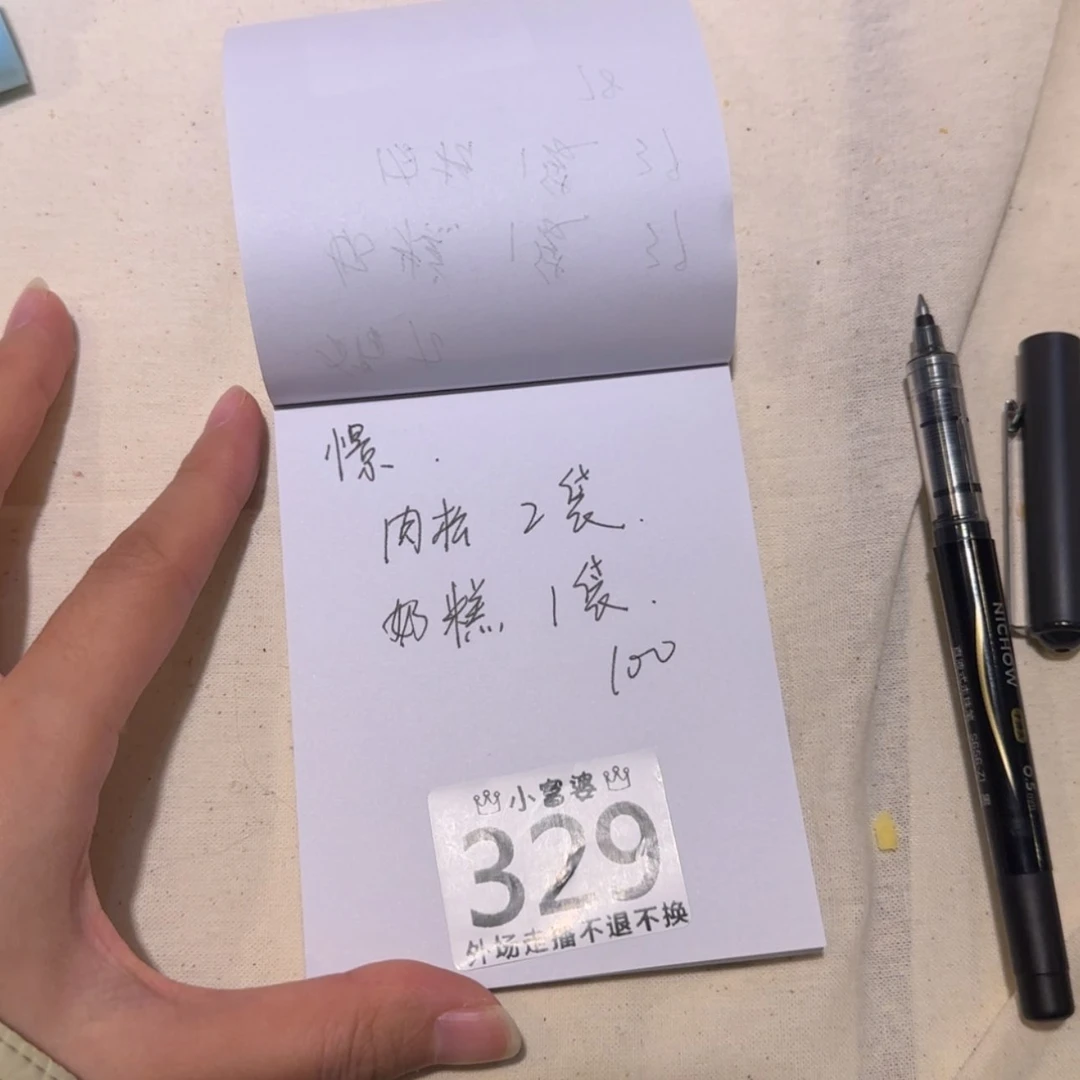 憬.
肉松 2袋.
奶糕 1袋.
100
小富婆
329
外场走播不退不换
NICHOW
0.5mm